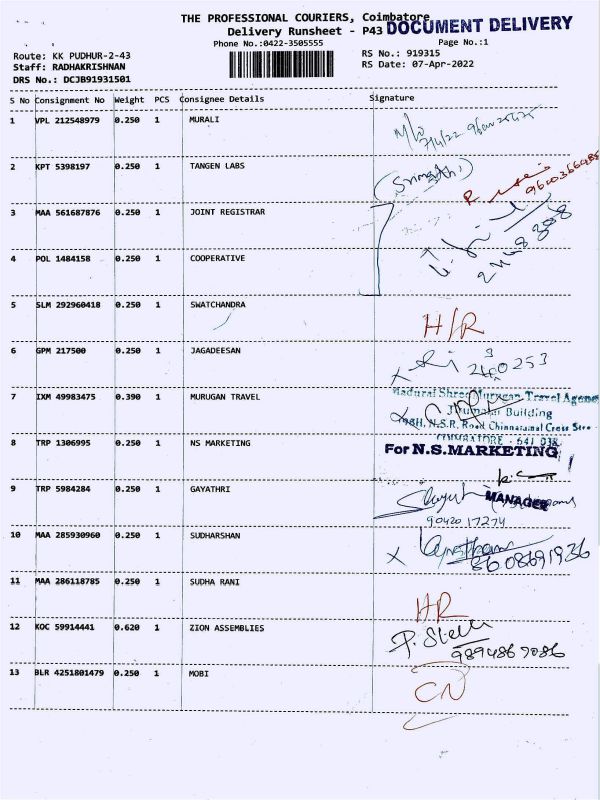 THE PROFESSIONAL COURIERS, Coimbatore
Delivery Runsheet - P43
DOCUMENT DELIVERY
Phone No.:0422-3505555
Page No.:1
Route: KK PUDHUR-2-43
RS No.: 919315
Staff: RADHAKRISHNAN
RS Date: 07-Apr-2022
DRS No.: DCJB91931501
S No Consignment No Weight PCS Consignee Details Signature
1 VPL 212548979 0.250 1 MURALI
2 KPT 5398197 0.250 1 TANGEN LABS
3 MAA 561687876 0.250 1 JOINT REGISTRAR
4 POL 1484158 0.250 1 COOPERATIVE
5 SLM 292960418 0.250 1 SWATCHANDRA
H/R
6 GPM 217500 0.250 1 JAGADEESAN
7 IXM 49983475 0.390 1 MURUGAN TRAVEL
Madurai Shree Murugan Travel Agency
Building
N.S.R. Road Chinnammal Cross Stre
COIMBATORE - 641 038
8 TRP 1306995 0.250 1 NS MARKETING
For N.S.MARKETING
MANAGER
9 TRP 5984284 0.250 1 GAYATHRI
9042017274
10 MAA 285930960 0.250 1 SUDHARSHAN
8608691936
11 MAA 286118785 0.250 1 SUDHA RANI
HR
12 KOC 59914441 0.620 1 ZION ASSEMBLIES
P. Stella
9894869086
13 BLR 4251801479 0.250 1 MOBI
CN